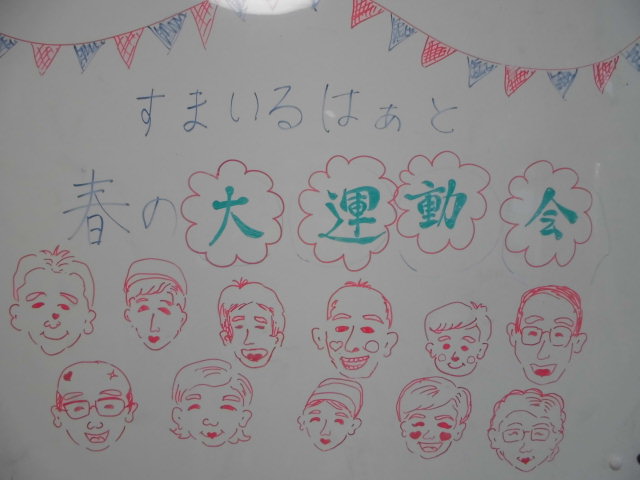 すまいるはぁと
春の大運動会